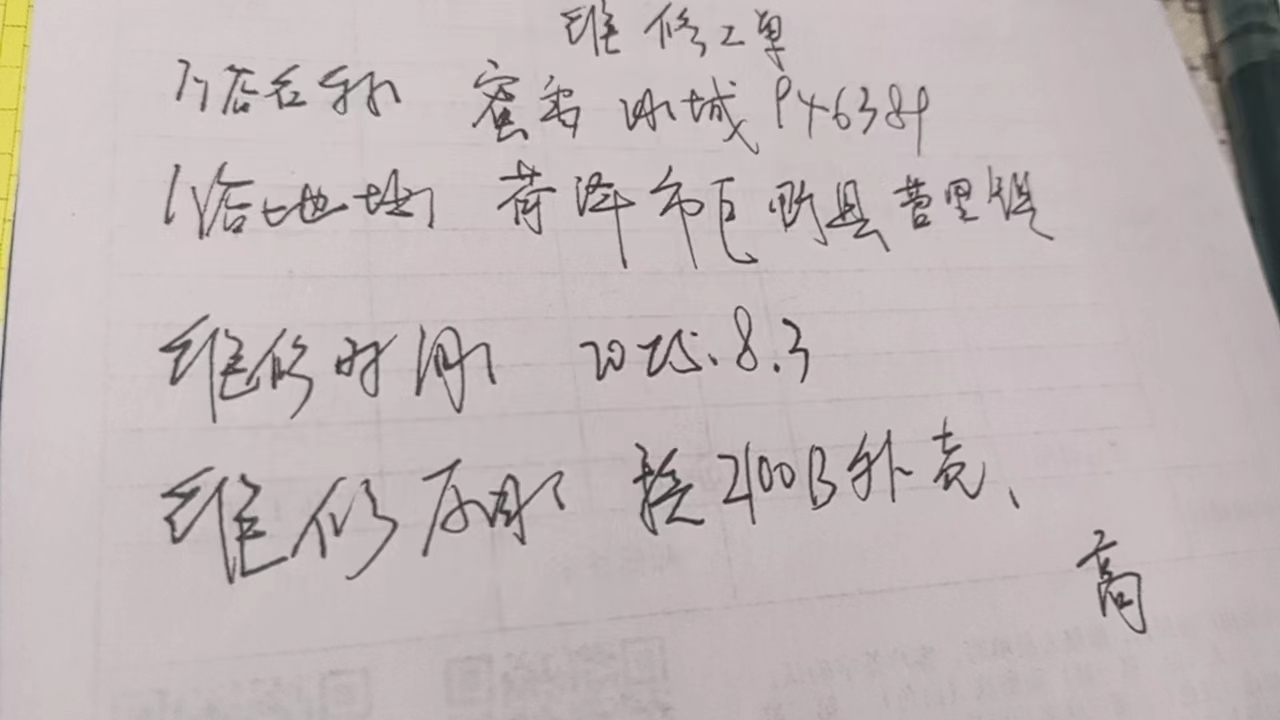 维修工单
门店名称 蜜雪冰城 P46389
门店地址 荷泽市巨野县营里镇
维修时间 2025.8.3
维修原因 换2100B外壳、
高